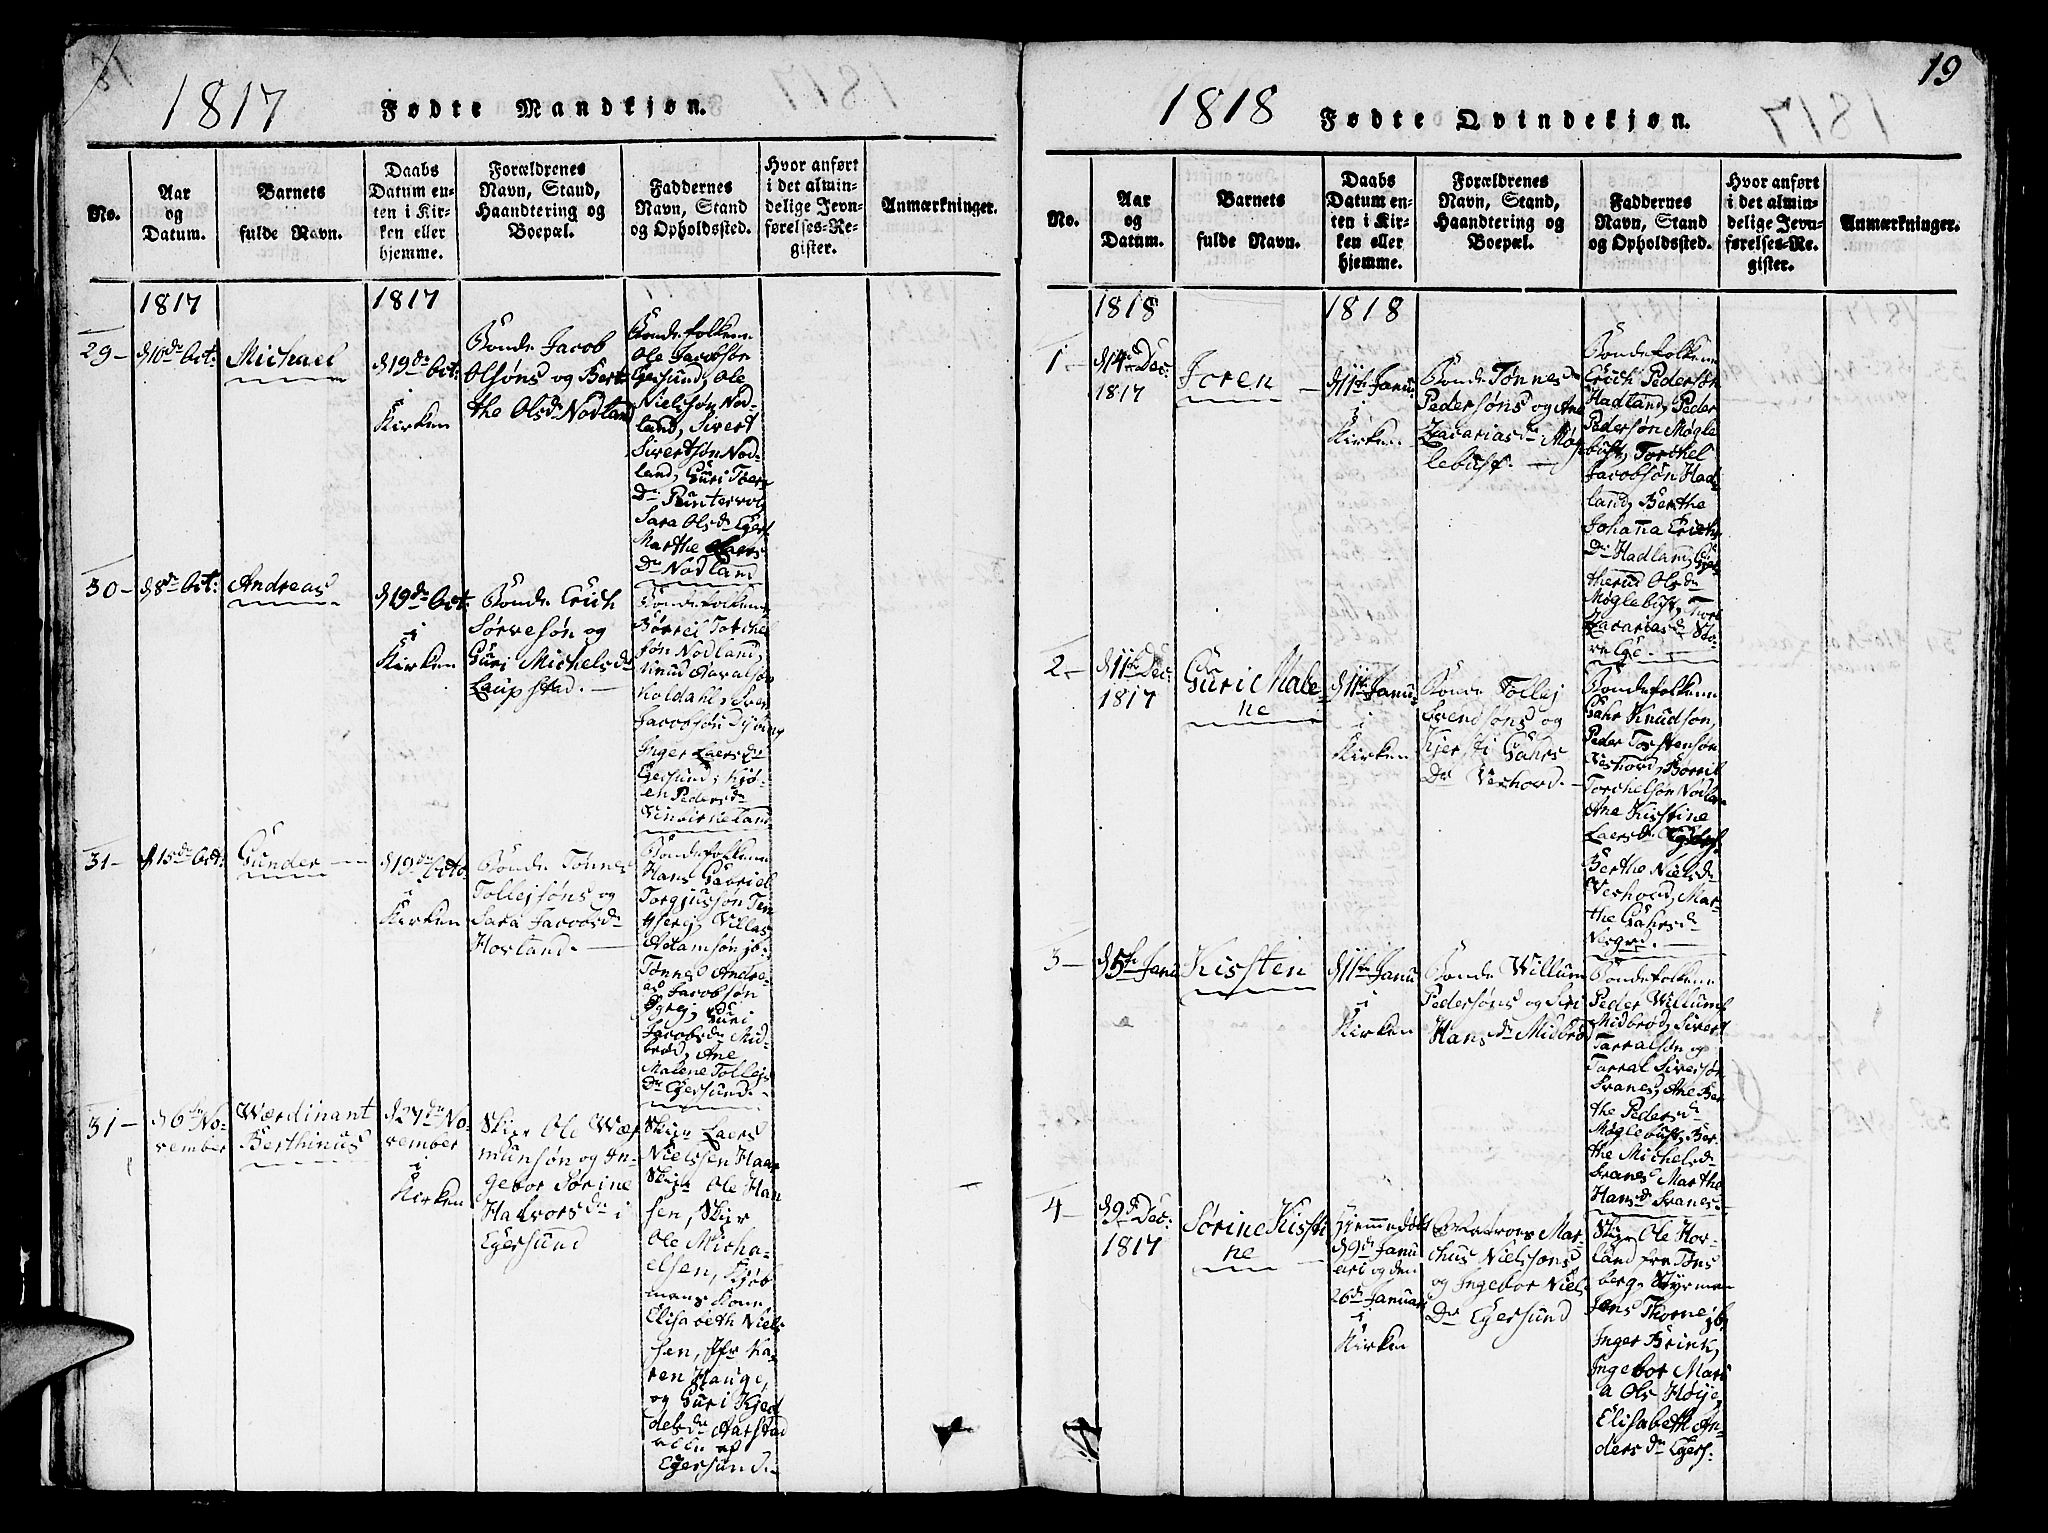 1817
Fødte Mandkjøn.
No.
Aar
og
Datum.
Barnets
fulde Navn.
Daabs
Datum en-
ten i Kir-
ken eller
hjemme.
Forældrenes
Navn, Stand,
Haandtering og
Boepæl.
Faddernes
Navn, Stand
og Opholdssted.
Hvor anført
i det almin-
delige Jevn-
førelses-Re-
gister.
Anmærkninger.
1817
1817
29-
d 10de Oct:
Michael
d 19de Oct:
i
Kirken
Bonde Jacob
Olsøns og Bert
the Olsdr Nodland
Bondefolkene
Ole Jacobsøn
Egersund, Ole
Nielsøn Nod-
land, Sivert
Sivertsøn Nod-
land, Guri
Dr
Sara Olsdr Egers
Marthe Laers
Dr Nodland
30-
d 8de Oct:
Andreas
d 19de Oct.
i
Kirken
Bonde Erich
Sørvesøn og
Guri Michelsdr
Laupstad.
Bondefolkene
Børrel Torchel
søn Nodland,
Knud
Koldahl, Sven
Jacobsøn
Inger Laersdr
Egersund,
en Pedersdr
31-
d 15de Oct:
Gunder
d 19de Octo.
i
Kirken
Bonde Tønnes
Tollejsøns og
Sara Jacobsdr
Hovland.
Bondefolkene
Hans Gabriel
Torgjussøn
Villas
Adamsøn ib:
Tønnes Andre-
as Jacobsøn
Guri
Jacobsdr Mid-
brød, Ane
Malene Tollejs
Dr Egersund.
31-
d 6de No-
vember
Werdinant
Berthinus
d 27de No-
vember
i
Kirken
Skipr Ole
munsøn og In-
gebor Sørine
Halvorsdr i
Egersund
Skipr Laers
Nielssen Haar
Skipr Ole Han
sen, Skipr
Ole Micha-
elsen, Kjøb
mans Kone
Elisabeth Niels
sen, Jfr Ka-
ren Hauge,
og Guri Kjed
delsdr Aarstad
alle af
Egersund.
19
1818
Fødte Qvindekjøn.
No.
Aar
og
Datum.
Barnets
fulde Navn.
Daabs
Datum en-
ten i Kir-
ken eller
hjemme.
Forældrenes
Navn, Stand,
Haandtering og
Boepæl.
Faddernes
Navn, Stand
og Opholdssted.
Hvor anført
i det almin-
delige Jevn-
førelses-Re-
gister.
Anmærkninger.
1818
1818
1
d 14de Dec:
1817
Joren
d 11te Janu.
i
Kirken
Bonde Tønnes
Pedersøns og Ane
Zacariasdr Møg
lebust.
Bondefolkene
Erich Pedersøn
Hadland, Peder
Pedersøn Møgle
bust, Torchel
Jacobsøn Had
land, Berthe
Johana Erichs
Dr Hadland,
Olsdr
Møglebust,
Zacariasdr
2-
d 11te Dec:
1817
Guri Male-
ne
d 11te Janu:
i
Kirken
Bonde Tollej
Svendsøns og
Kjersti Gahrs
Dr Veshovd.
Bondefolkene
Gahr Knudsøn,
Peder Torstensøn
Veshovd, Børril
Torchelsøn Nodlan
Ane Kistine
Laersdr
Berthe Nielsdr
Veshovd, Mar-
the Gahrsdr
3-
d 5te Janu
Kisten
d 11te Janu
i
Kirken
Bonde Willum
Pedersøns og Siri
Hansdr Midbrød
Bondefolkene
Peder Willumsn
Midbrød, Sivert
Tarralsøn og
Tarral Sivertsøn
Svanes, Ane Ber
the Pedersdr
Møglebust, Ber-
the Michelsdr
Svanes, Marthe
Hansdr Svanes.
4-
d 9de Dec:
1817
Sørine Kisti
ne
Hjemmedøbt
d 9de Janu
ari og den
26de Januari
i
Kirken
Matroes Mar-
chus Nielssøns
og Ingebor Niels
Dr Egersund
Skipr Ole Hor-
land fra Tøns
berg, Styrman
Jens Thorne, ib,
Inger Brink,
Ingebor Mari
a Ols Høije,
Elisabeth An-
dersdr Egers.